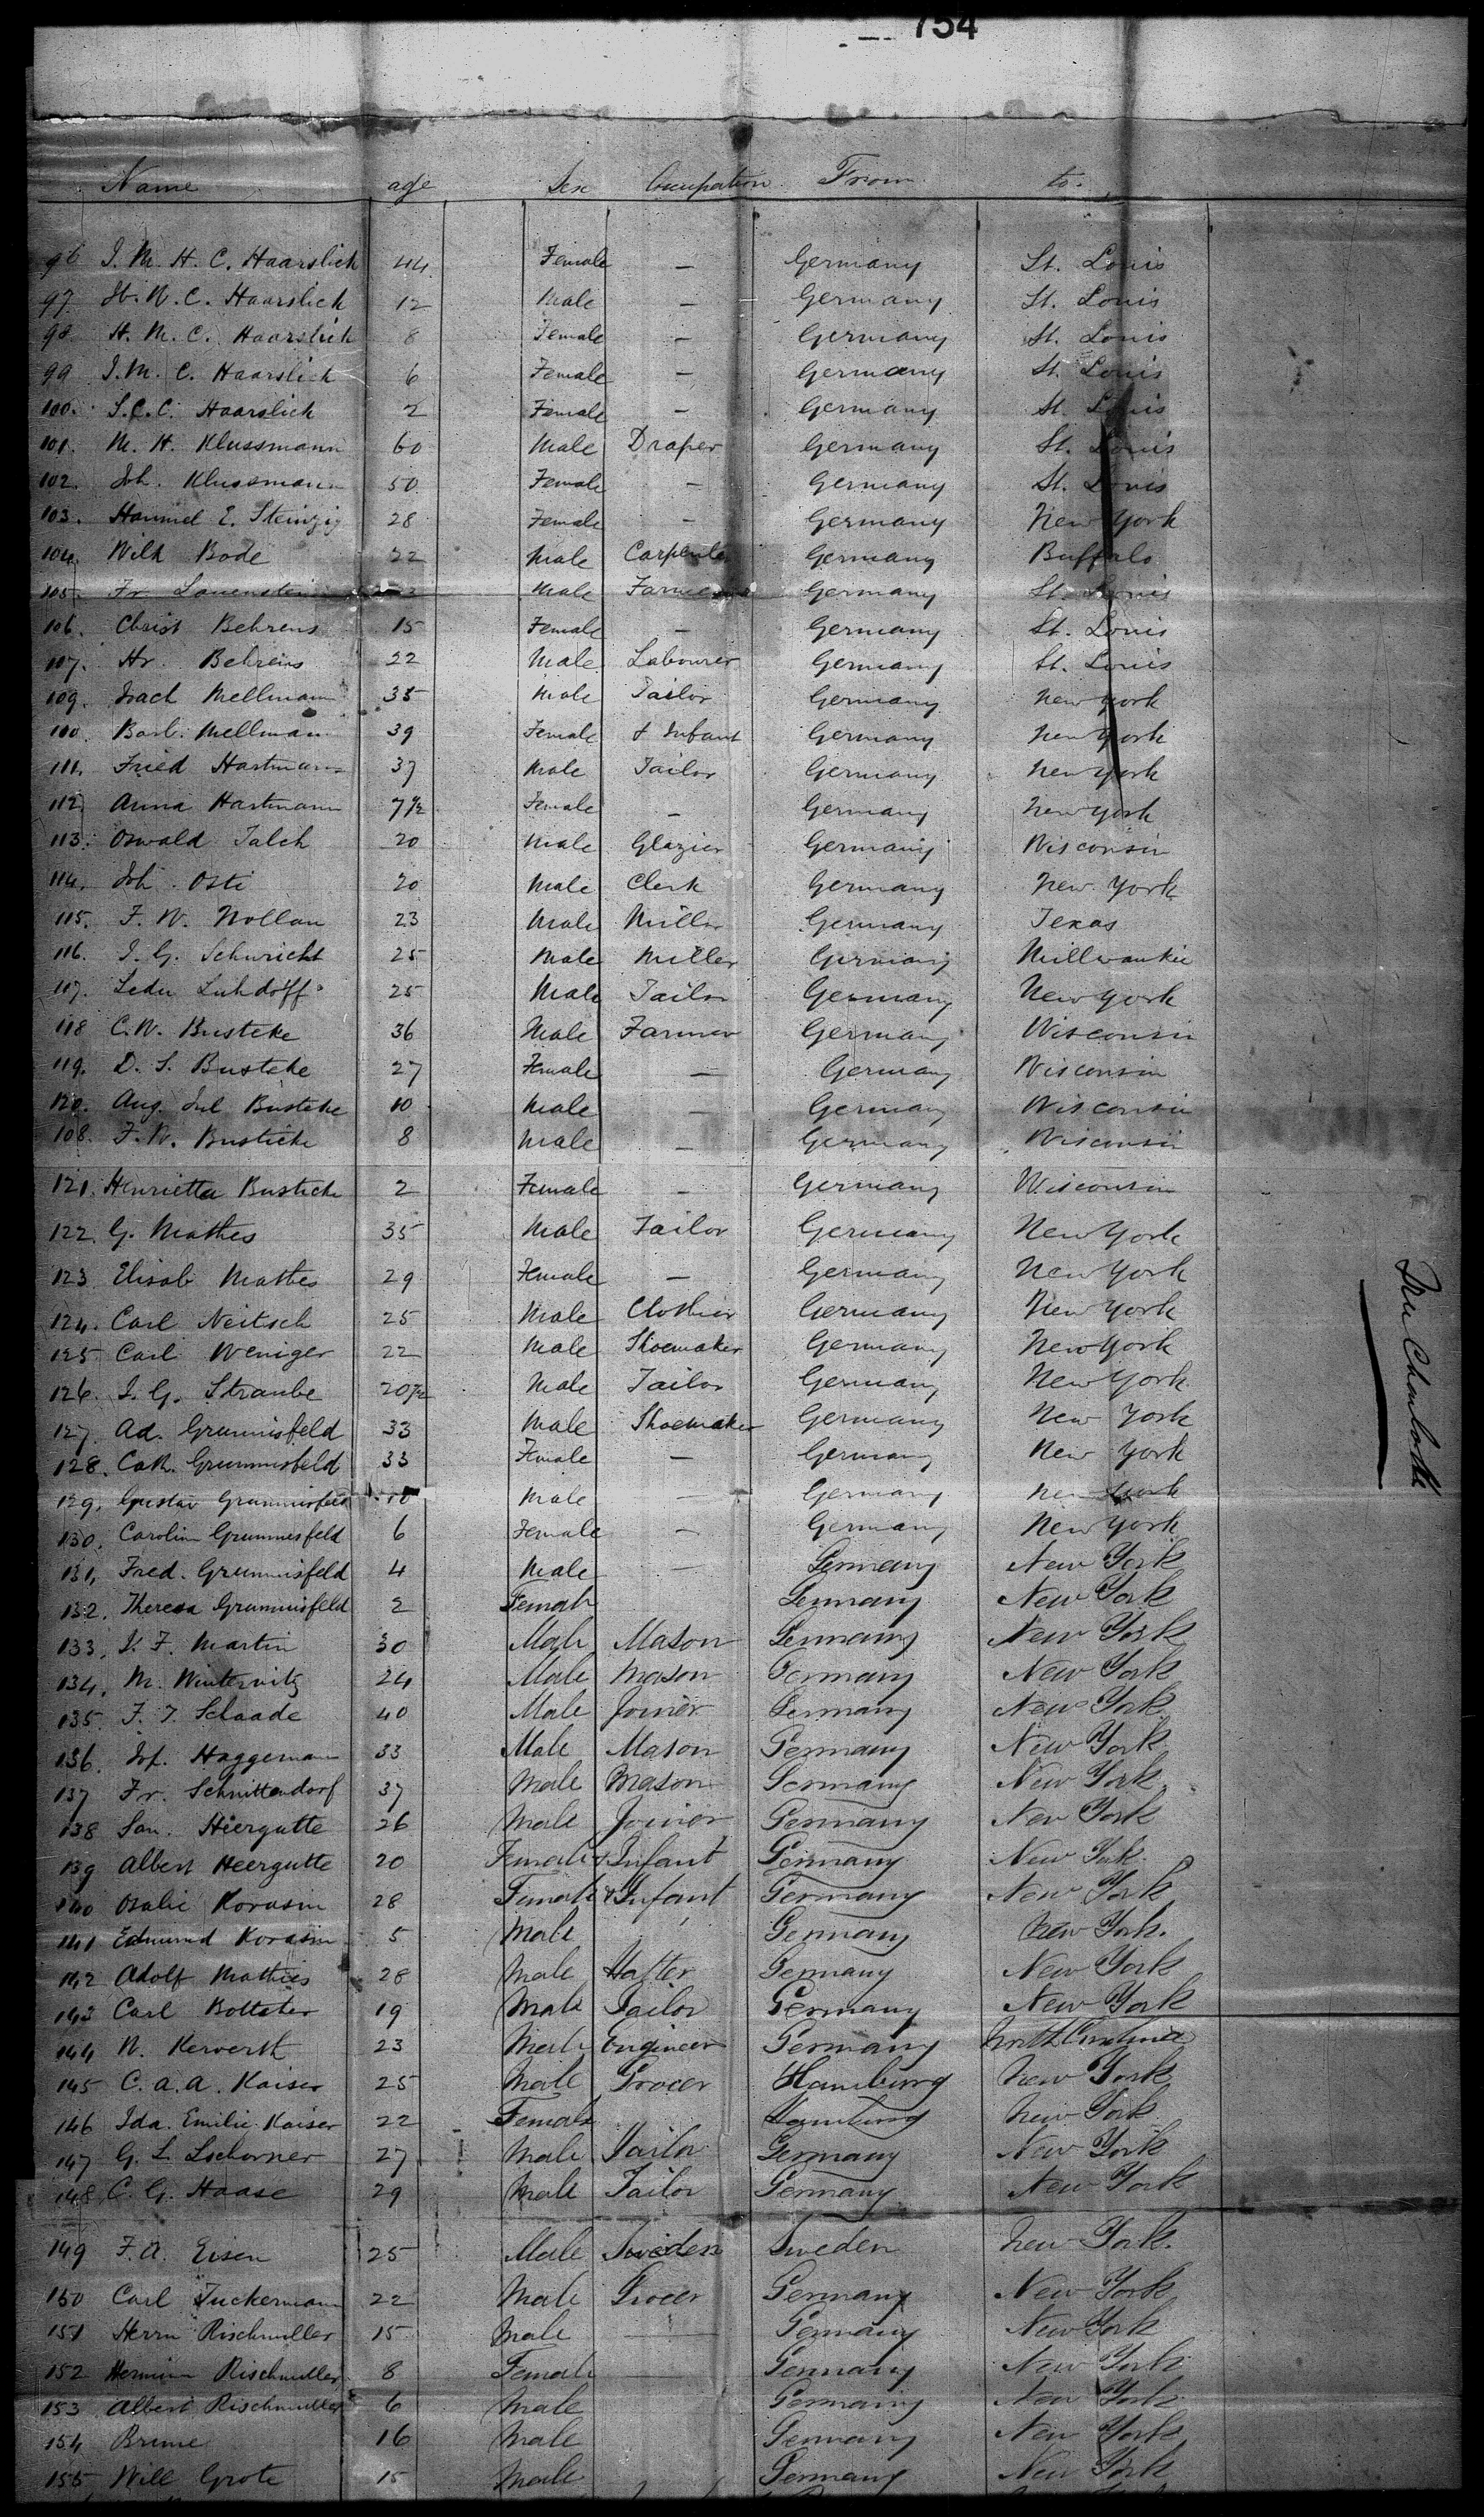 754
Name age Sex Occupation From to
96 J. M. H. C. Haarslick 44 Female — Germany St. Louis
97. W. C. Haarslick 12 Male — Germany St. Louis
98. H. M. C. Haarslick 8 Female — Germany St. Louis
99 J. M. C. Haarslick 6 Female — Germany St. Louis
100. S. C. C. Haarslick 2 Female — Germany St. Louis
101. M. H. Klussmann 60 Male Draper Germany St. Louis
102. Joh. Klussmann 50 Female — Germany St. Louis
103. E. Steinzig 28 Female — Germany New York
104. Wilh Bode 22 Male Carpenter Germany Buffalo
105. Fr. Lauenstein Male Farmer Germany St. Louis
106. Christ Behrens 15 Female — Germany St. Louis
107. Hr. Behrens 22 Male Labourer Germany St. Louis
109. Mellmann 35 Male Tailor Germany New York
110. Barb. Mellmann 39 Female & Infant Germany New York
111. Fried Hartmann 37 Male Tailor Germany New York
112. Anna Hartmann 7 1/2 Female — Germany New York
113. Oswald Talch 20 Male Glazier Germany Wisconsin
114. Joh. Osti 20 Male Clerk Germany New York
115. F. W. Nollau 23 Male Miller Germany Texas
116. J. G. Schuricht 25 Male Miller Germany Millwaukie
117. Luhdorff 25 Male Tailor Germany New York
118 C. W. Busteke 36 Male Farmer Germany Wisconsin
119. D. S. Busteke 27 Female — Germany Wisconsin
120. Aug. Jul Busteke 10 Male — Germany Wisconsin
108. F. W. Busticke 8 Male — Germany Wisconsin
121. Henrietta Busticke 2 Female — Germany Wisconsin
122. G. Mathes 35 Male Tailor Germany New York
123 Elisab Mathes 29 Female — Germany New York
124. Carl Neitsch 25 Male Clothier Germany New York
125 Carl Weniger 22 Male Shoemaker Germany New York
126. J. G. Straube 20 1/2 Male Tailor Germany New York
127. Ad. Grummisfeld 33 Male Shoemaker Germany New York
128. Cath. Grummisfeld 33 Female — Germany New York
129. Gustav Grummisfeld 10 Male — Germany New York
130. Carolin Grummesfeld 6 Female — Germany New York
131. Fred. Grummisfeld 4 Male — Germany New York
132. Theresa Grummisfeld 2 Female Germany New York
133. J. F. Martin 30 Male Mason Germany New York
134. M. Winternitz 24 Male Mason Germany New York
135. F. T. Schaade 40 Male Joiner Germany New York
136. Jos. Haggeman 33 Male Mason Germany New York
137 Fr. Schnittendorf 37 Male Mason Germany New York
138 San. Heergutte 26 Male Joiner Germany New York
139 Albert Heergutte 20 Female & Infant Germany New York
140 Osalie Korasin 28 Female & Infant Germany New York
141 Edmund Korasin 5 Male Germany New York.
142 Adolf Mathies 28 Male Hatter Germany New York
143 Carl Bottster 19 Male Tailor Germany New York
144 W. Kerverth 23 Male Engineer Germany North Carolina
145 C. A. A. Kaiser 25 Male Grocer Hamburg New York
146 Ida. Emilie Kaiser 22 Female Hamburg New York
147 G. L. Lschorner 27 Male Tailor Germany New York
148 C. G. Haase 29 Male Tailor Germany New York
149 F. A. Eisen 25 Male Sweden Sweden New York.
150 Carl Tuckermann 22 Male Grocer Germany New York
151 Herrn Rischmuller 15 Male — Germany New York
152 Hermin Rischmuller 8 Female — Germany New York
153 Albert Rischmuller 6 Male Germany New York
154 Brune 16 Male Germany New York
155 Will Grote 15 Male Germany New York